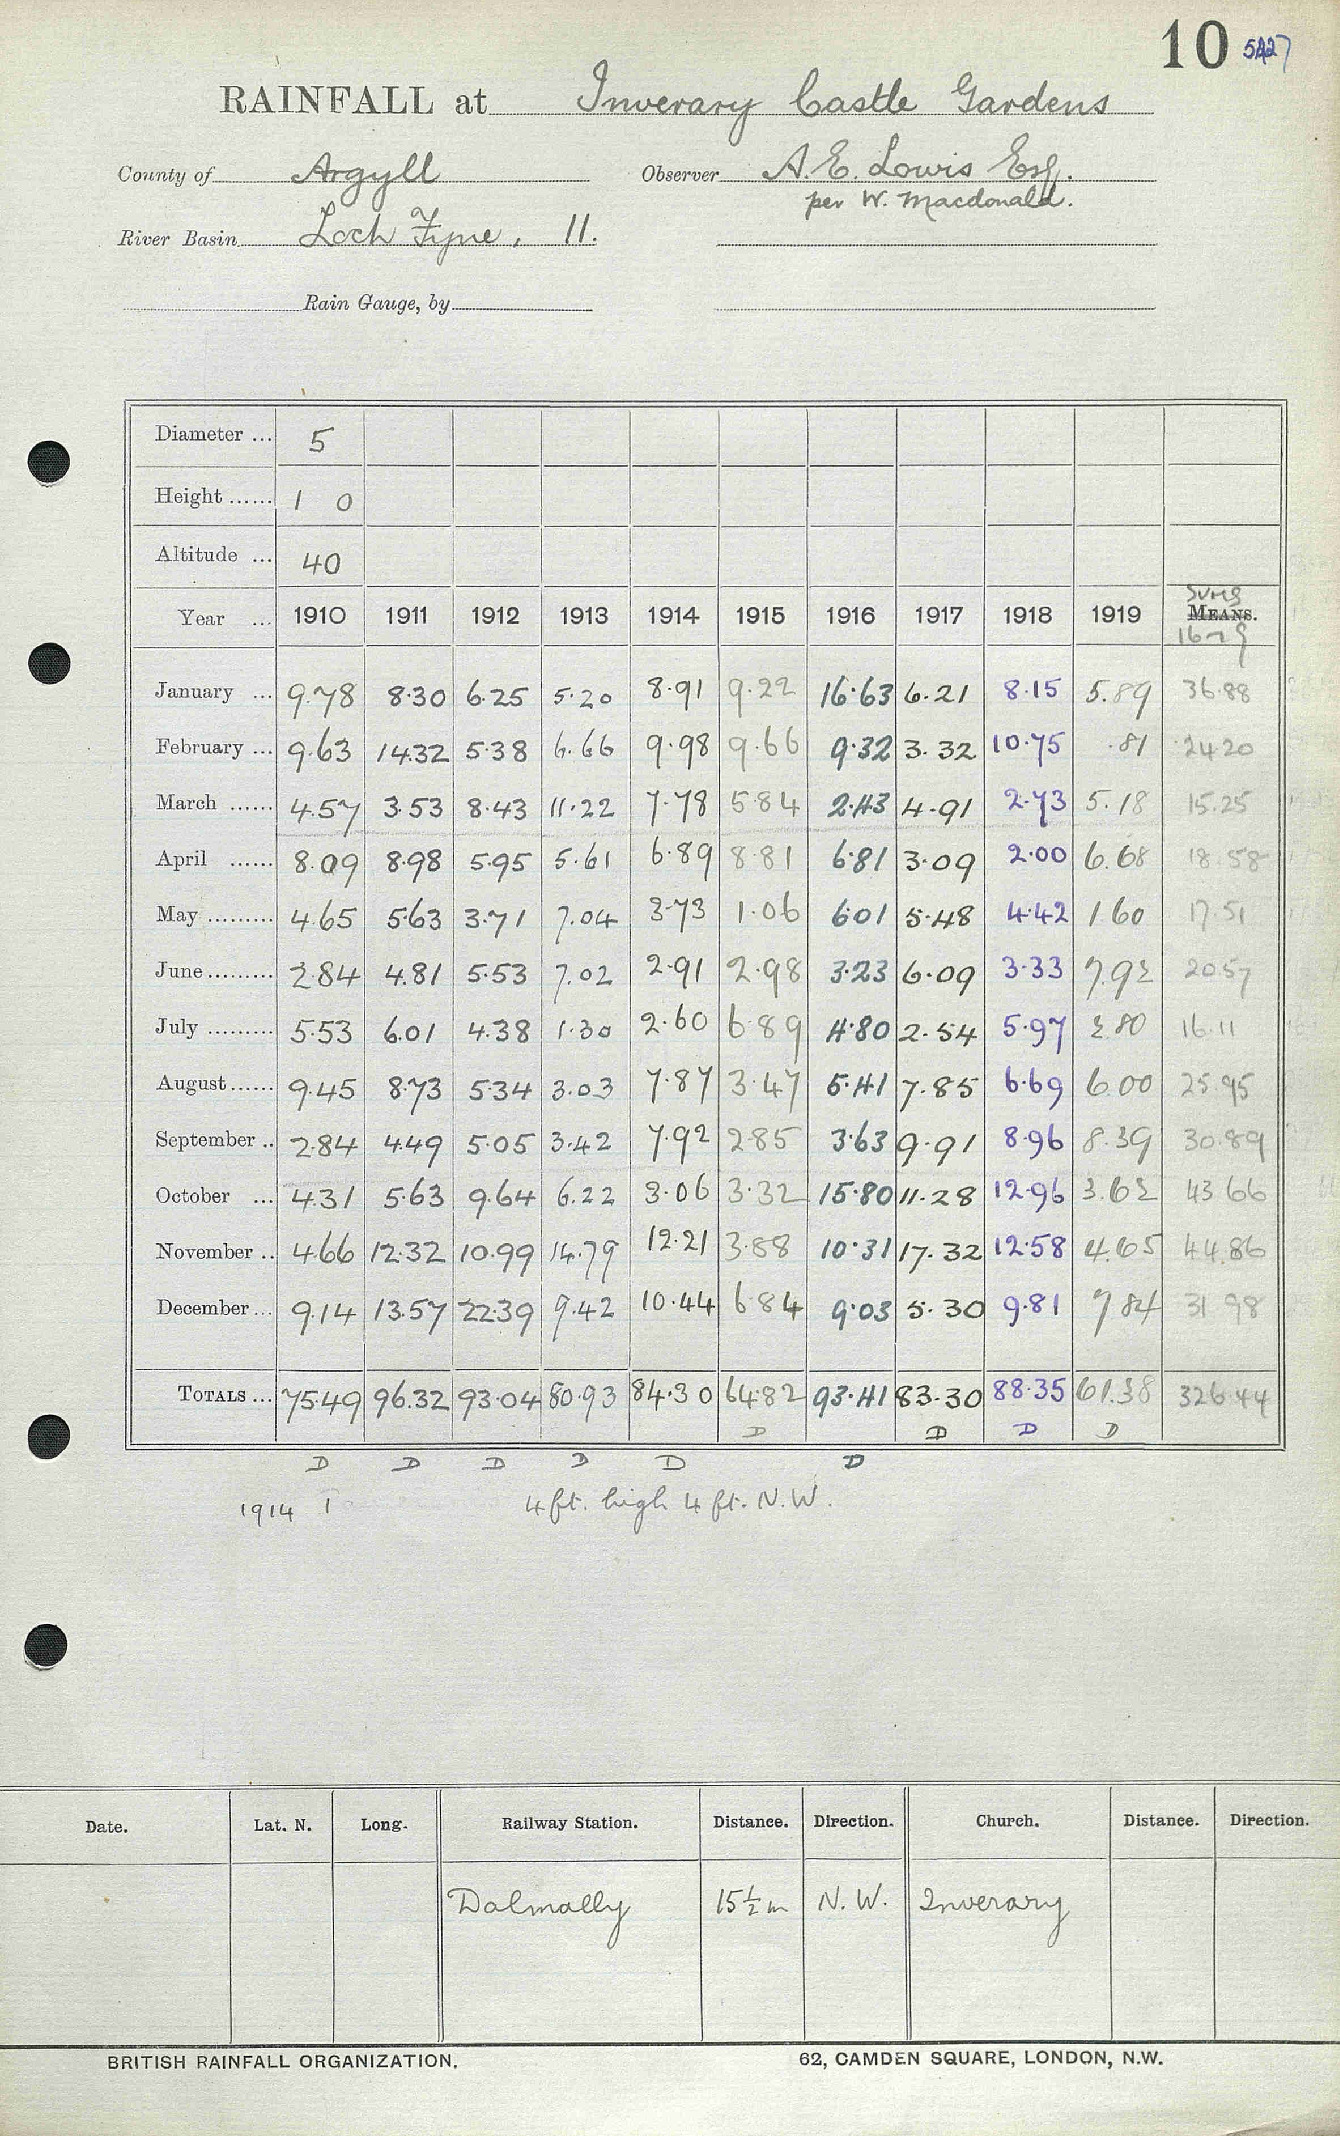 10 5227
RAINFALL at Inverary Castle Gardens
County of Argyll Observer A. E. Lowis Esq.
per W. Macdonald.
River Basin Loch Fyne, 11.
Rain Gauge, by
Diameter ... 5
Height ...... 1 0
Altitude ... 40
Sums
Year ... 1910 1911 1912 1913 1914 1915 1916 1917 1918 1919 MEANS.
16-19
January ... 9.78 8.30 6.25 5.20 8.91 9.22 16.63 6.21 8.15 5.89 36.88
February ... 9.63 14.32 5.38 6.66 9.98 9.66 9.32 3.32 10.75 .81 24.20
March ...... 4.57 3.53 8.43 11.22 7.78 5.84 2.43 4.91 2.73 5.18 15.25
April ...... 8.09 8.98 5.95 5.61 6.89 8.81 6.81 3.09 2.00 6.68 18.58
May ......... 4.65 5.63 3.71 7.04 3.73 1.06 6.01 5.48 4.42 1.60 17.51
June ......... 2.84 4.81 5.53 7.02 2.91 2.98 3.23 6.09 3.33 7.92 20.57
July ......... 5.53 6.01 4.38 1.30 2.60 6.89 4.80 2.54 5.97 2.80 16.11
August ...... 9.45 8.73 5.34 3.03 7.87 3.47 5.41 7.85 6.69 6.00 25.95
September .. 2.84 4.49 5.05 3.42 7.92 2.85 3.63 9.91 8.96 8.39 30.89
October ... 4.31 5.63 9.64 6.22 3.06 3.32 15.80 11.28 12.96 3.62 43.66
November .. 4.66 12.32 10.99 14.79 12.21 3.88 10.31 17.32 12.58 4.65 44.86
December ... 9.14 13.57 22.39 9.42 10.44 6.84 9.03 5.30 9.81 7.84 31.98
TOTALS ... 75.49 96.32 93.04 80.93 84.30 64.82 93.41 83.30 88.35 61.38 326.44
D D D D
D D D D D D
1914 1 4 ft. high 4 ft. N.W.
Date. Lat. N. Long. Railway Station. Distance. Direction. Church. Distance. Direction.
Dalmally 15½ m N. W. Inverary
BRITISH RAINFALL ORGANIZATION. 62, CAMDEN SQUARE, LONDON, N.W.